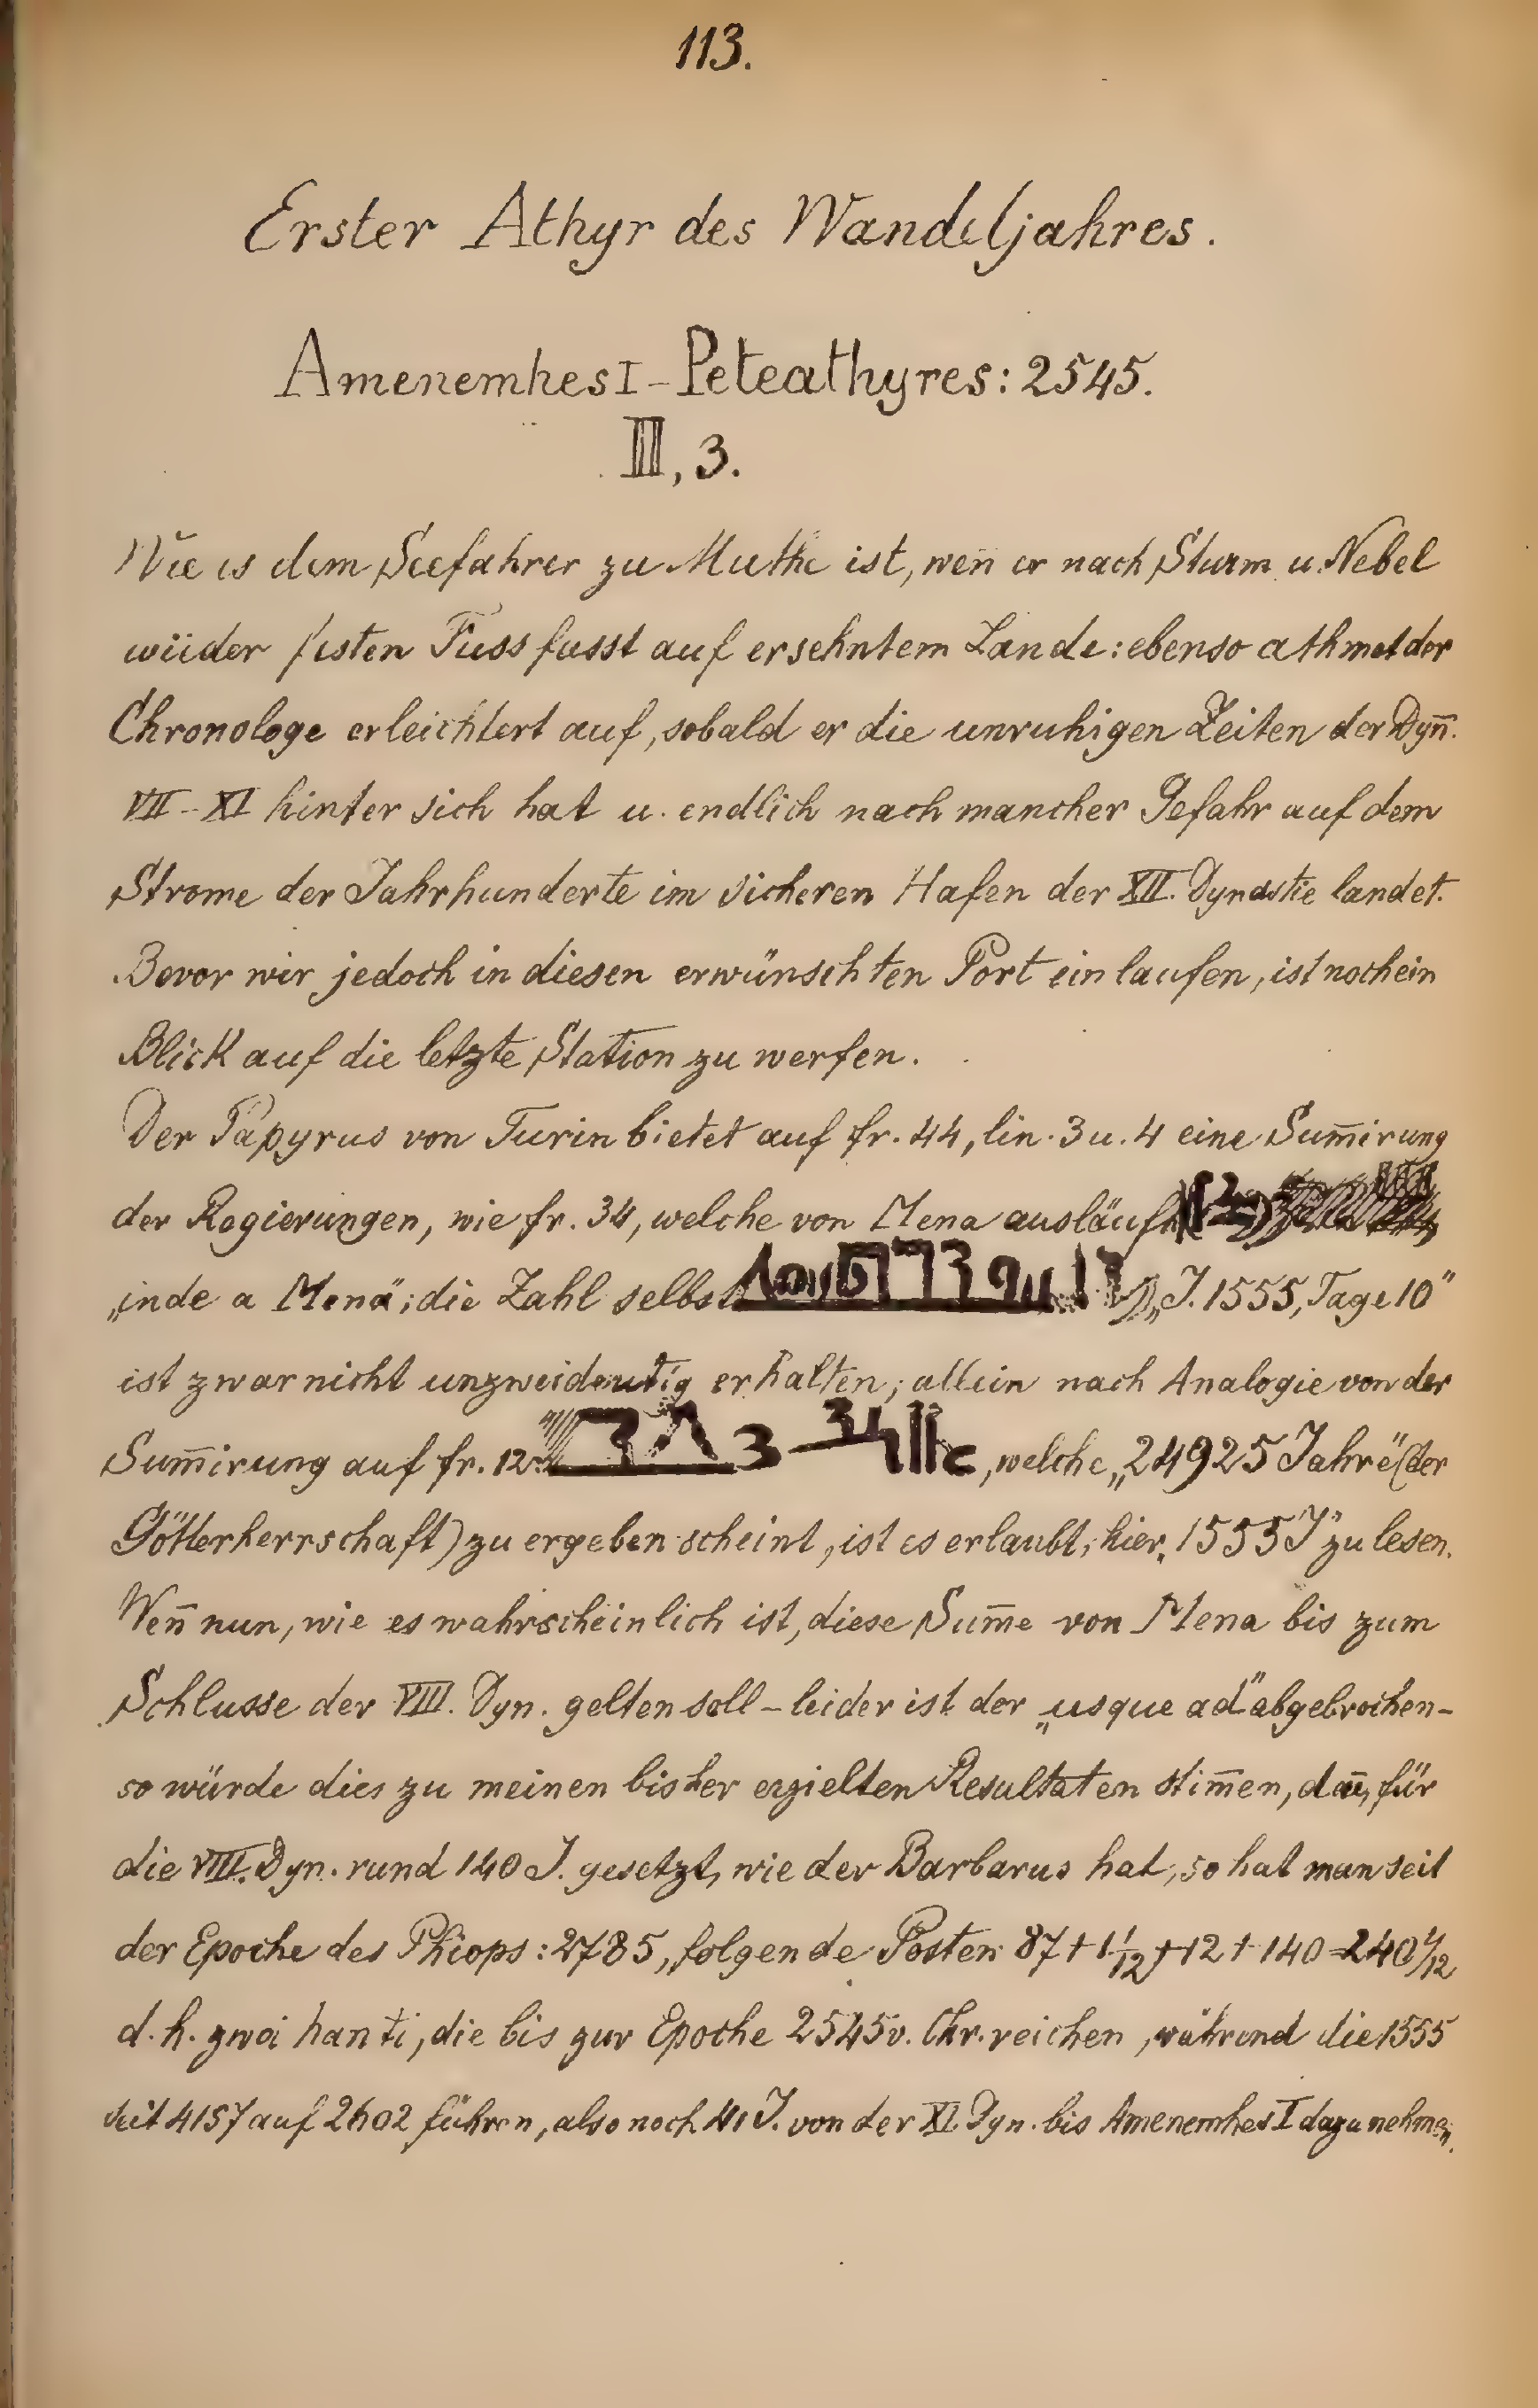 113.
Erster Athyr des Wandeljahres.
Amenemhes I - Peteathyres: 2545.
III, 3.
Wie es dem Seefahrer zu Muthe ist, weñ er nach Sturm u. Nebel
wieder festen Fuss fusst auf ersehntem Lande: ebenso athmet der
Chronologe erleichtert auf, sobald er die unruhigen Zeiten der Dyñ.
VII - XI hinter sich hat u. endlich nach mancher Gefahr auf dem
Strome der Jahrhunderte im sicheren Hafen der XII. Dynastie landet.
Bevor wir jedoch in diesen erwünschten Port einlaufen, ist noch ein
Blick auf die letzte Station zu werfen.
Der Papyrus von Turin bietet auf fr. 44, lin. 3 u. 4 eine Sum̄irung
der Regierungen, wie fr. 34, welche von Mena ausläuft
„inde a Mena“; die Zahl selbst „J. 1555, Tage 10“
ist zwar nicht unzweideutig erhalten; allein nach Analogie von der
Sum̄irung auf fr. 12 , welche „24925 Jahre“ (der
Götterherrschaft) zu ergeben scheint, ist es erlaubt, hier „1555 J“ zu lesen.
Weñ nun, wie es wahrscheinlich ist, diese Sum̄e von Mena bis zum
Schlusse der VIII. Dyn. gelten soll - leider ist der „usque ad“ abgebrochen -
so würde dies zu meinen bisher erzielten Resultaten stim̄en, deñ, für
die VIII. Dyn. rund 140 J. gesetzt, wie der Barbarus hat, so hat man seit
der Epoche des Phiops: 2785, folgende Posten 87 + 1 1/12 + 12 + 140 = 240 1/12
d. h. zwei hanti, die bis zur Epoche 2545 v. Chr. reichen, während die 1555
seit 4157 auf 2602 führen, also noch J. von der XI. Dyn. bis Amenemhes I dazu nehmen.